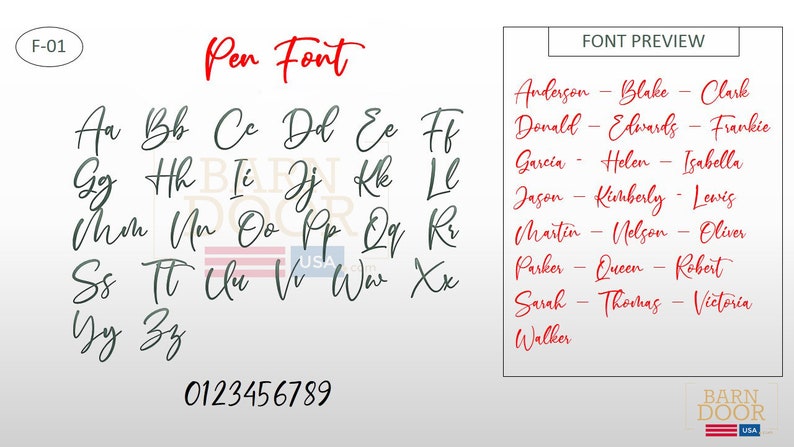 F-01
Pen Font
Aa Bb Cc Dd Ee Ff
Gg Hh Ii Jj Kk Ll
Mm Nn Oo Pp Qq Rr
Ss Tt Uu Vv Ww Xx
Yy Zz
0123456789
BARN
DOOR
USA.com
FONT PREVIEW
Anderson – Blake – Clark
Donald – Edwards – Frankie
Garcia - Helen – Isabella
Jason – Kimberly - Lewis
Martin – Nelson – Oliver
Parker – Queen – Robert
Sarah – Thomas – Victoria
Walker
BARN
DOOR
USA.com